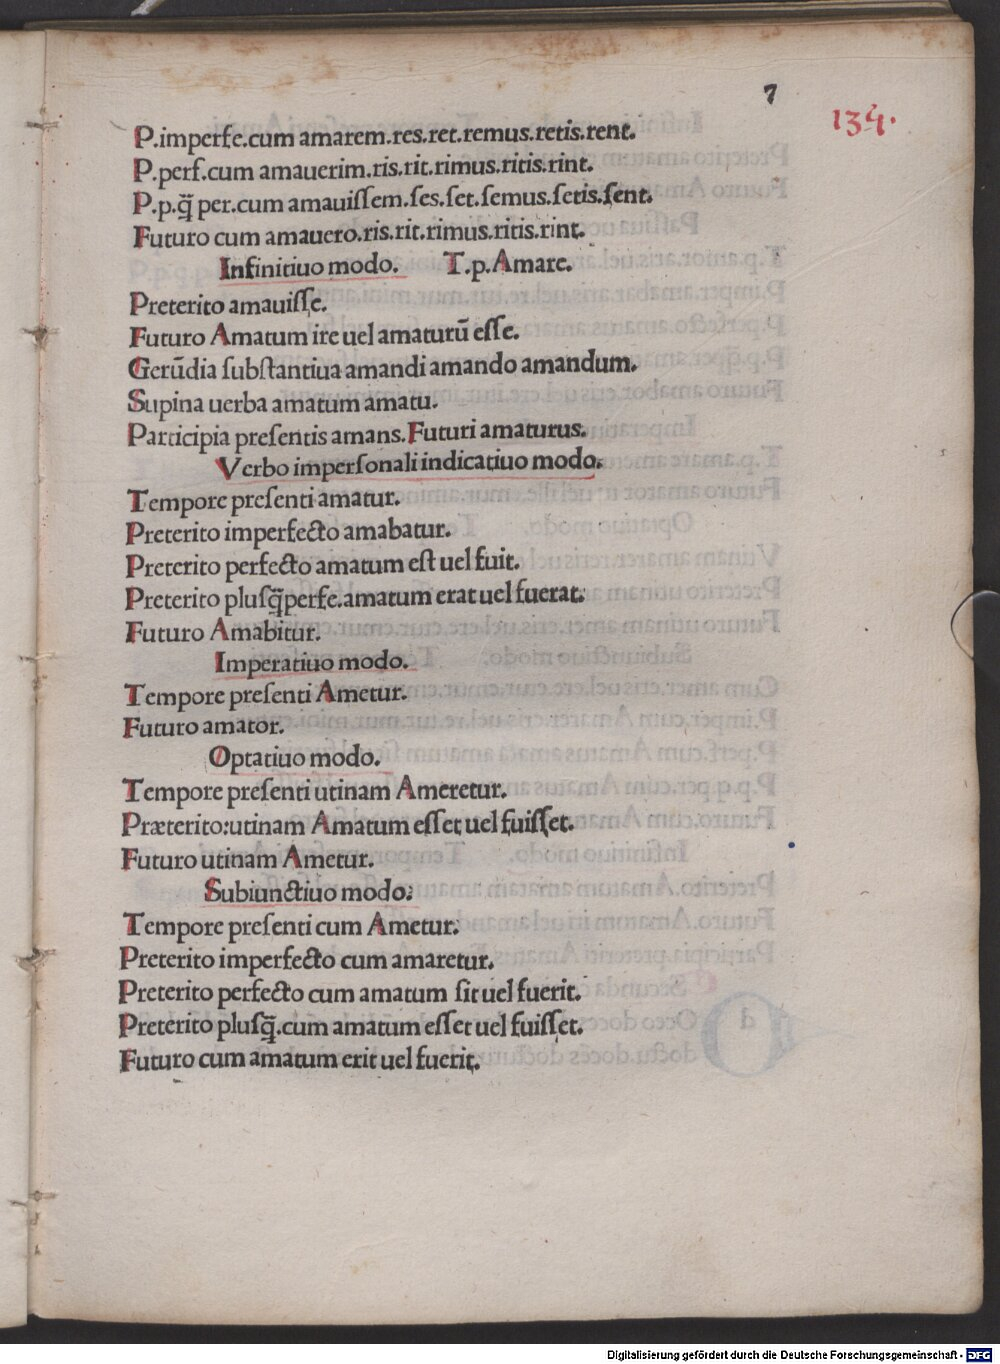 7
134.
P.imperfe.cum amarem.res.ret.remus.retis.rent.
P.perf.cum amauerim.ris.rit.rimus.ritis.rint.
P.p.q̃ per.cum amauiſſem.ſes.ſet.ſemus.ſetis.ſent.
Futuro cum amauero.ris.rit.rimus.ritis.rint.
Infinitiuo modo. T.p.Amare.
Preterito amauiſſe.
Futuro Amatum ire uel amaturũ eſſe.
Gerũdia ſubſtantiua amandi amando amandum.
Supina uerba amatum amatu.
Participia preſentis amans.Futuri amaturus.
Verbo imperſonali indicatiuo modo.
Tempore preſenti amatur.
Preterito imperfecto amabatur.
Preterito perfecto amatum eſt uel fuit.
Preterito pluſq̃perfe.amatum erat uel fuerat.
Futuro Amabitur.
Imperatiuo modo.
Tempore preſenti Ametur.
Futuro amator.
Optatiuo modo.
Tempore preſenti utinam Ameretur.
Præterito:utinam Amatum eſſet uel fuiſſet.
Futuro utinam Ametur.
Subiunctiuo modo.
Tempore preſenti cum Ametur.
Preterito imperfecto cum amaretur.
Preterito perfecto cum amatum ſit uel fuerit.
Preterito pluſq̃.cum amatum eſſet uel fuiſſet.
Futuro cum amatum erit uel fuerit.
Digitalisierung gefördert durch die Deutsche Forschungsgemeinschaft - DFG